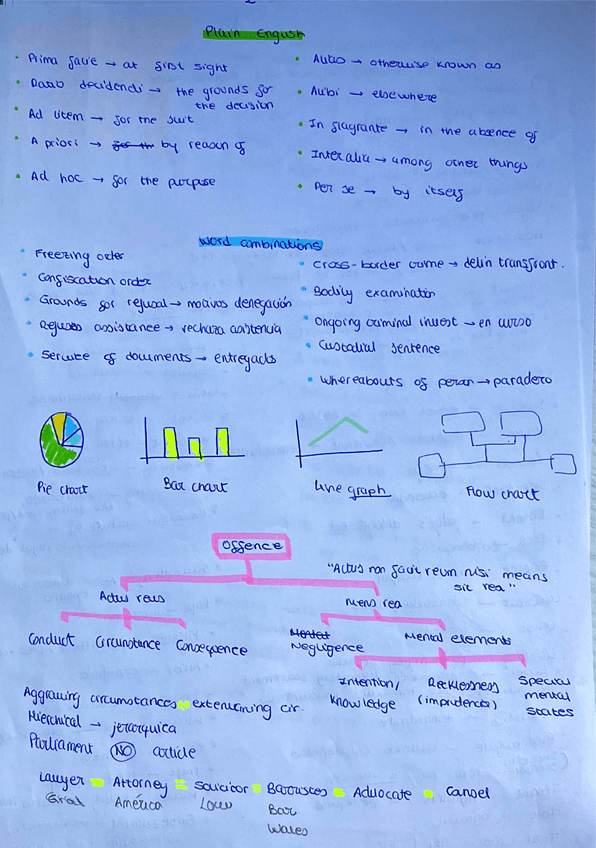 Plain English
Prima facie → at first sight
Ratio decidendi → the grounds for
the decision
Ad litem → for the suit
A priori → for th by reason of
Ad hoc → for the purpose
Alias → otherwise known as
Alibi → elsewhere
In flagrante → in the absence of
Inter alia → among other things
Per se → by itself
Word combinations
Freezing order
Confiscation order
Grounds for refusal → motivos denegación
Refuses assistance → rechaza asistencia
Service of documents → entrega cts
cross-border crime → delin transfront.
Bodily examination
Ongoing criminal invest → en curso
Custodial sentence
Whereabouts of person → paradero
Pie chart
Bar chart
Line graph
Flow chart
Offence
"Actus non facit reum nisi means
sit rea"
Actus reus
Mens rea
Conduct
Circunstance
Consequence
Mental
Negligence
Mental elements
Intention/
Knowledge
Recklessness
(imprudencia)
Special
mental
states
Aggraving circumstances extenuining cir.
Hierchical → jerarquica
Parliament NO article
Lawyer = Attorney = Solicitor = Barrister = Advocate = Cansel
América
Bar
Wales